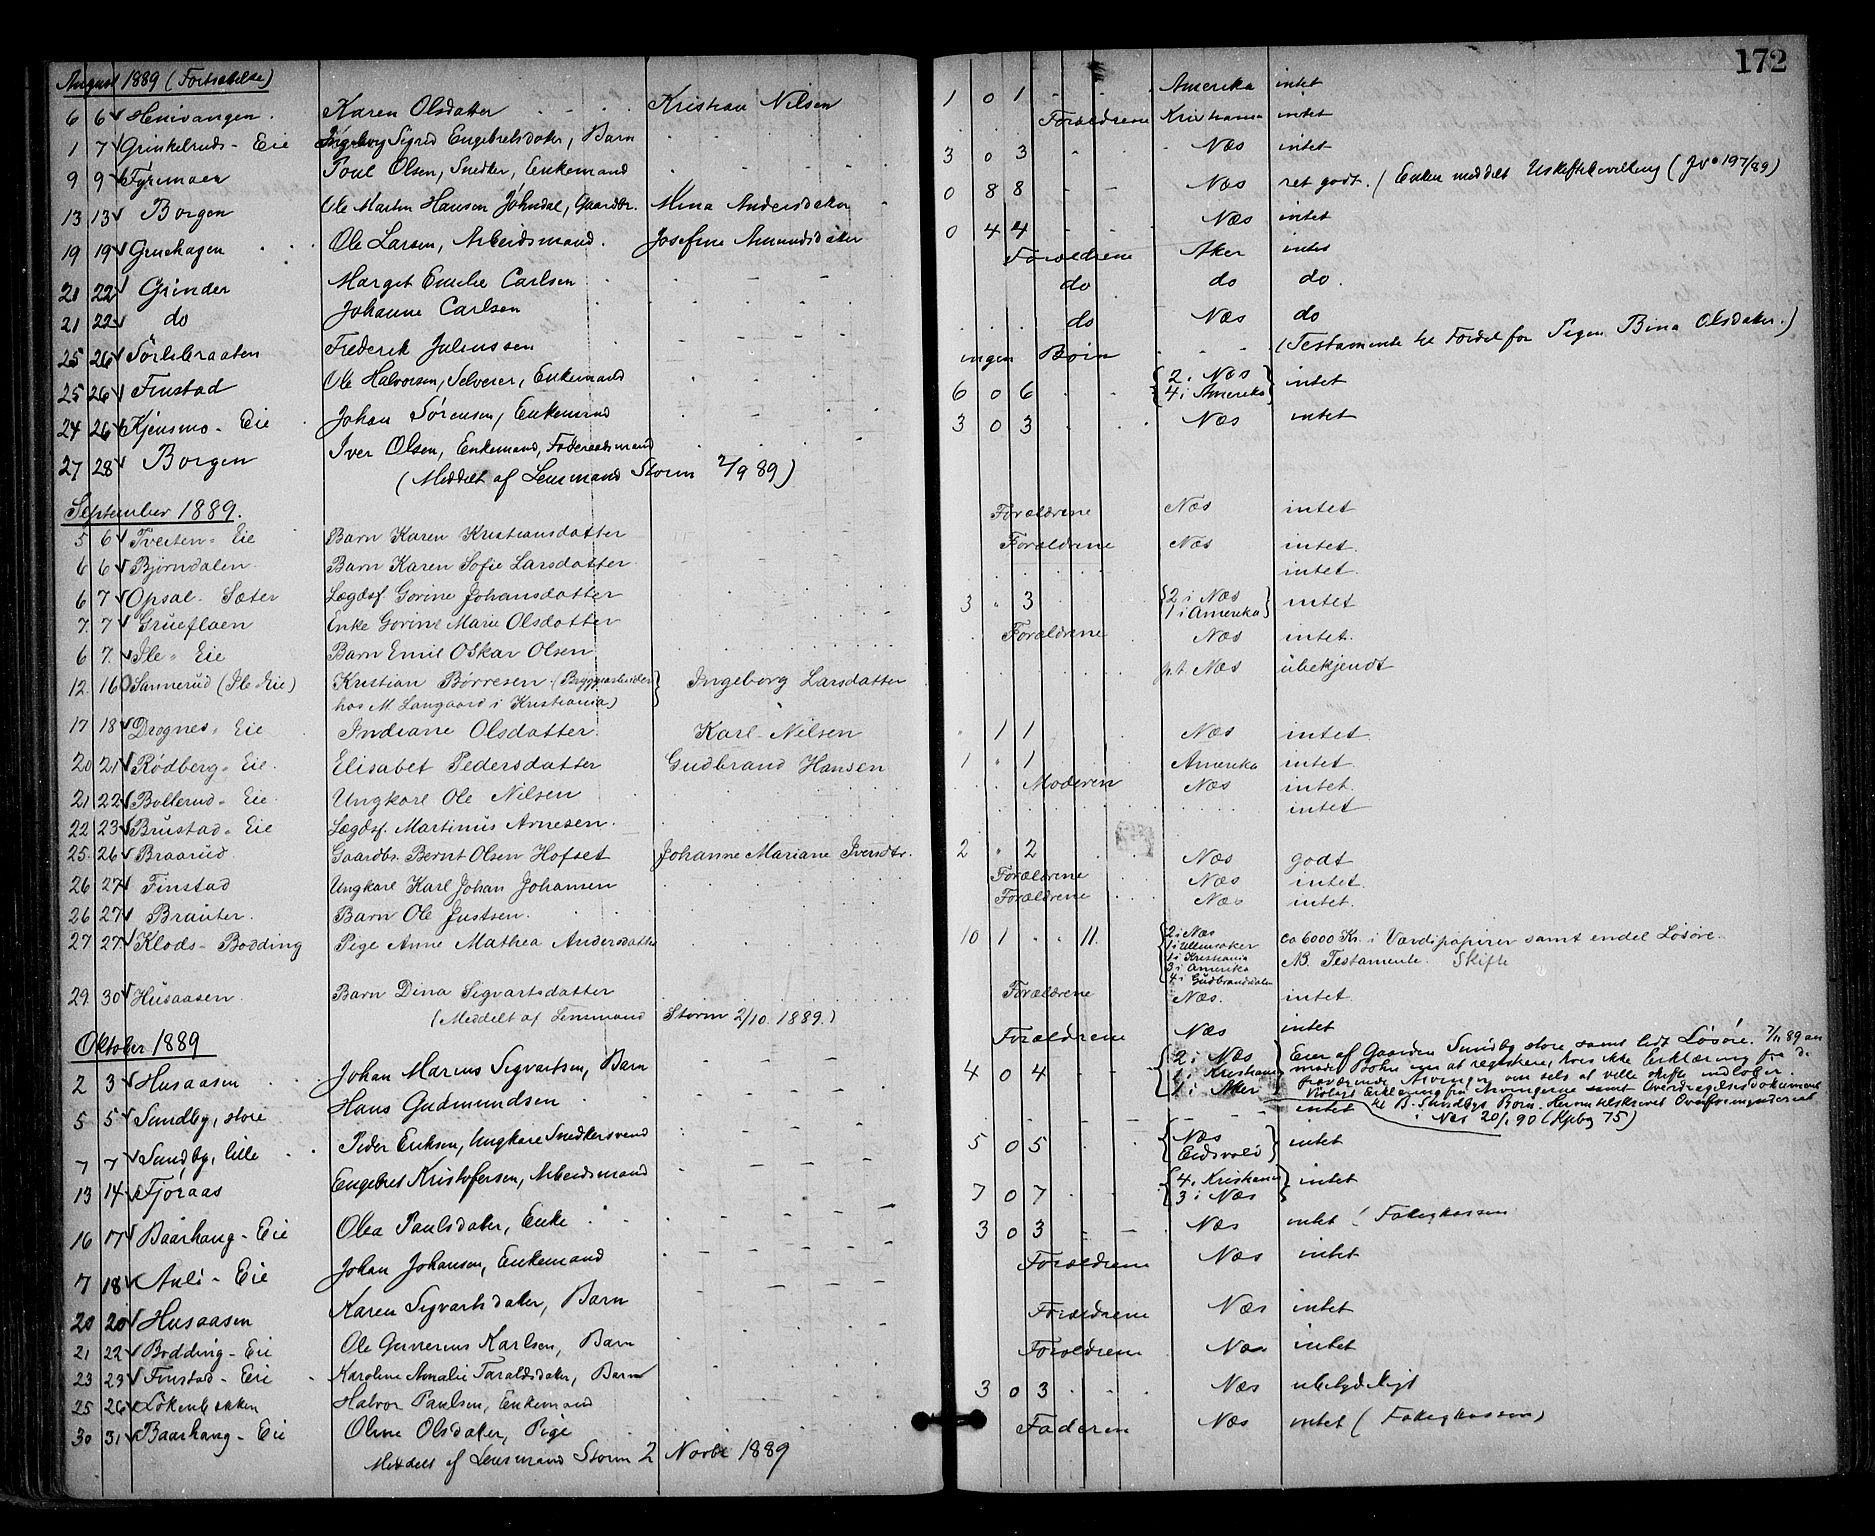 172
August 1889 (Fortsættelse)
6 6 Henivangen. Karen Olsdatter Kristian Nilsen 1 0 1 Amerika intet
1 7 Grinkelruds-Eie Ingeborg Sigrid Engebretsdater, Barn Forældrene Kristiania intet
9 9 Fyrimoen Poul Olsen, Snedker, Enkemand 3 0 3 Næs intet
13 13 Borgen Ole Martin Hansen Johndal, Gaardbr. Mina Andersdater 0 8 8 Næs ret godt. (Enken meddelt Uskiftebevilling (JNo 197/89)
19 19 Gruehagen Ole Larsen, Arbeidsmand. Josefine Amundsdater 0 4 4 Næs intet
21 22 Grinder Margit Emilie Carlsen Forældrene Aker intet
21 22 do Johanne Carlsen do do do.
25 26 Sörlibraaten Frederik Juliussen do Næs do
25 26 Finstad Ole Halvorsen, Selveier, Enkemand ingen Börn (Testamente til Fordel for Pigen Bina Olsdater.)
24 26 Kjensmo-Eie Johan Sörensen, Enkemand 6 0 6 {2 i Næs 4 i Amerika} intet
27 28 Borgen Iver Olsen, Enkemand, Föderaadsmand 3 0 3 Næs intet
(Meddelt af Lensmand Storm 2/9 89)
September 1889.
5 6 Tveiten-Eie Barn Karen Kristiansdatter Forældrene Næs intet
6 6 Bjørndalen Barn Karen Sofie Larsdatter Forældrene Næs intet.
6 7 Opsal-Sæter Lægdsf. Gorine Johansdatter intet.
7. 7 Grueflaen Enke Gorine Marie Olsdatter 3 " 3 {2 i Næs 1 i Amerika} intet
6 7. Ile-Eie Barn Emil Oskar Olsen Forældrene Næs intet.
12. 16 Sannerud (Ile Eie) Kristian Börresen (Bryggearbeider hos M. Langaard i Kristiania) Ingeborg Larsdatter p.t. Næs ubekjendt
17 18 Drognes-Eie Indiane Olsdatter. Karl Nilsen 1 1 Næs intet.
20 21 Rødberg-Eie. Elisabet Pedersdatter Gudbrand Hansen 1 " 1 Amerika intet.
21 22 Bollerud-Eie. Ungkarl Ole Nilsen Moderen Næs intet.
22 23 Brustad-Eie Lægdsf. Martinus Arnesen. intet
25. 26 Braarud. Gaardbr. Bernt Olsen Hofset Johanne Mariane Iversdtr. 2 " 2 Næs godt
26 27 Finstad Ungkarl Karl Johan Johansen Forældrene Næs intet.
26 27 Brauter. Barn Ole Justsen. Forældrene Næs intet.
27 27 Klods-Bodding Pige Anne Mathea Andersdatter 10 1 11. {2 i Næs 1 i Ullensaker 1 i Kristiania 3 i Amerika 4 i Gudbrandsdalen ca 6000 Kr. i Værdipapirer samt endel Løsøre.
NB. Testamente. Skifte
29. 30 Husaasen. Barn Dina Sigvartsdatter Forældrene Næs. intet.
(Meddelt af Lensmand Storm 2/10 1889.)
Oktober 1889
2 3 Husaasen Johan Marius Sigvartsen, Barn Forældrene Næs intet
5 5 Sundby, store Hans Gudmundsen 4 0 4 {2 i Næs 1 i Kristiania 1 i Aker} Eier af Gaarden Sundby store samt lidt Lösöre. 7/11 89 an
7 7 Sundby, lille Peder Eriksen, Ungkarl Snedkersvend intet
i Næs 20/1 90 (Kpbog 75)
13 14 Fjöraas Engebret Kristofersen, Arbeidsmand 5 0 5 {Næs Eidsvold} intet
16 17 Baarhaug-Eie Olea Paulsdater, Enke 7 0 7 {4 i Kristiania 3 i Næs} intet
7 18 Auli-Eie Johan Johansen, Enkemand 3 0 3 Næs intet (Fatigkassen
20 20 Husaasen Karen Sigvartsdater, Barn Forældrene Næs intet
21 22 Bodding-Eie Ole Gunerius Karlsen, Barn Forældrene Næs intet
23 23 Finstad-Eie Karoline Amalie Taraldsdater, Barn Forældrene Næs intet
25 26 Lökenbakken Halvor Paulsen, Enkemand 3 0 3 Næs ubetydeligt
30 31 Baarhaug-Eie Oline Olsdater, Pige Faderen Næs intet (Fatigkassen)
Meddelt af Lensmand Storm 2 Novbr 1889